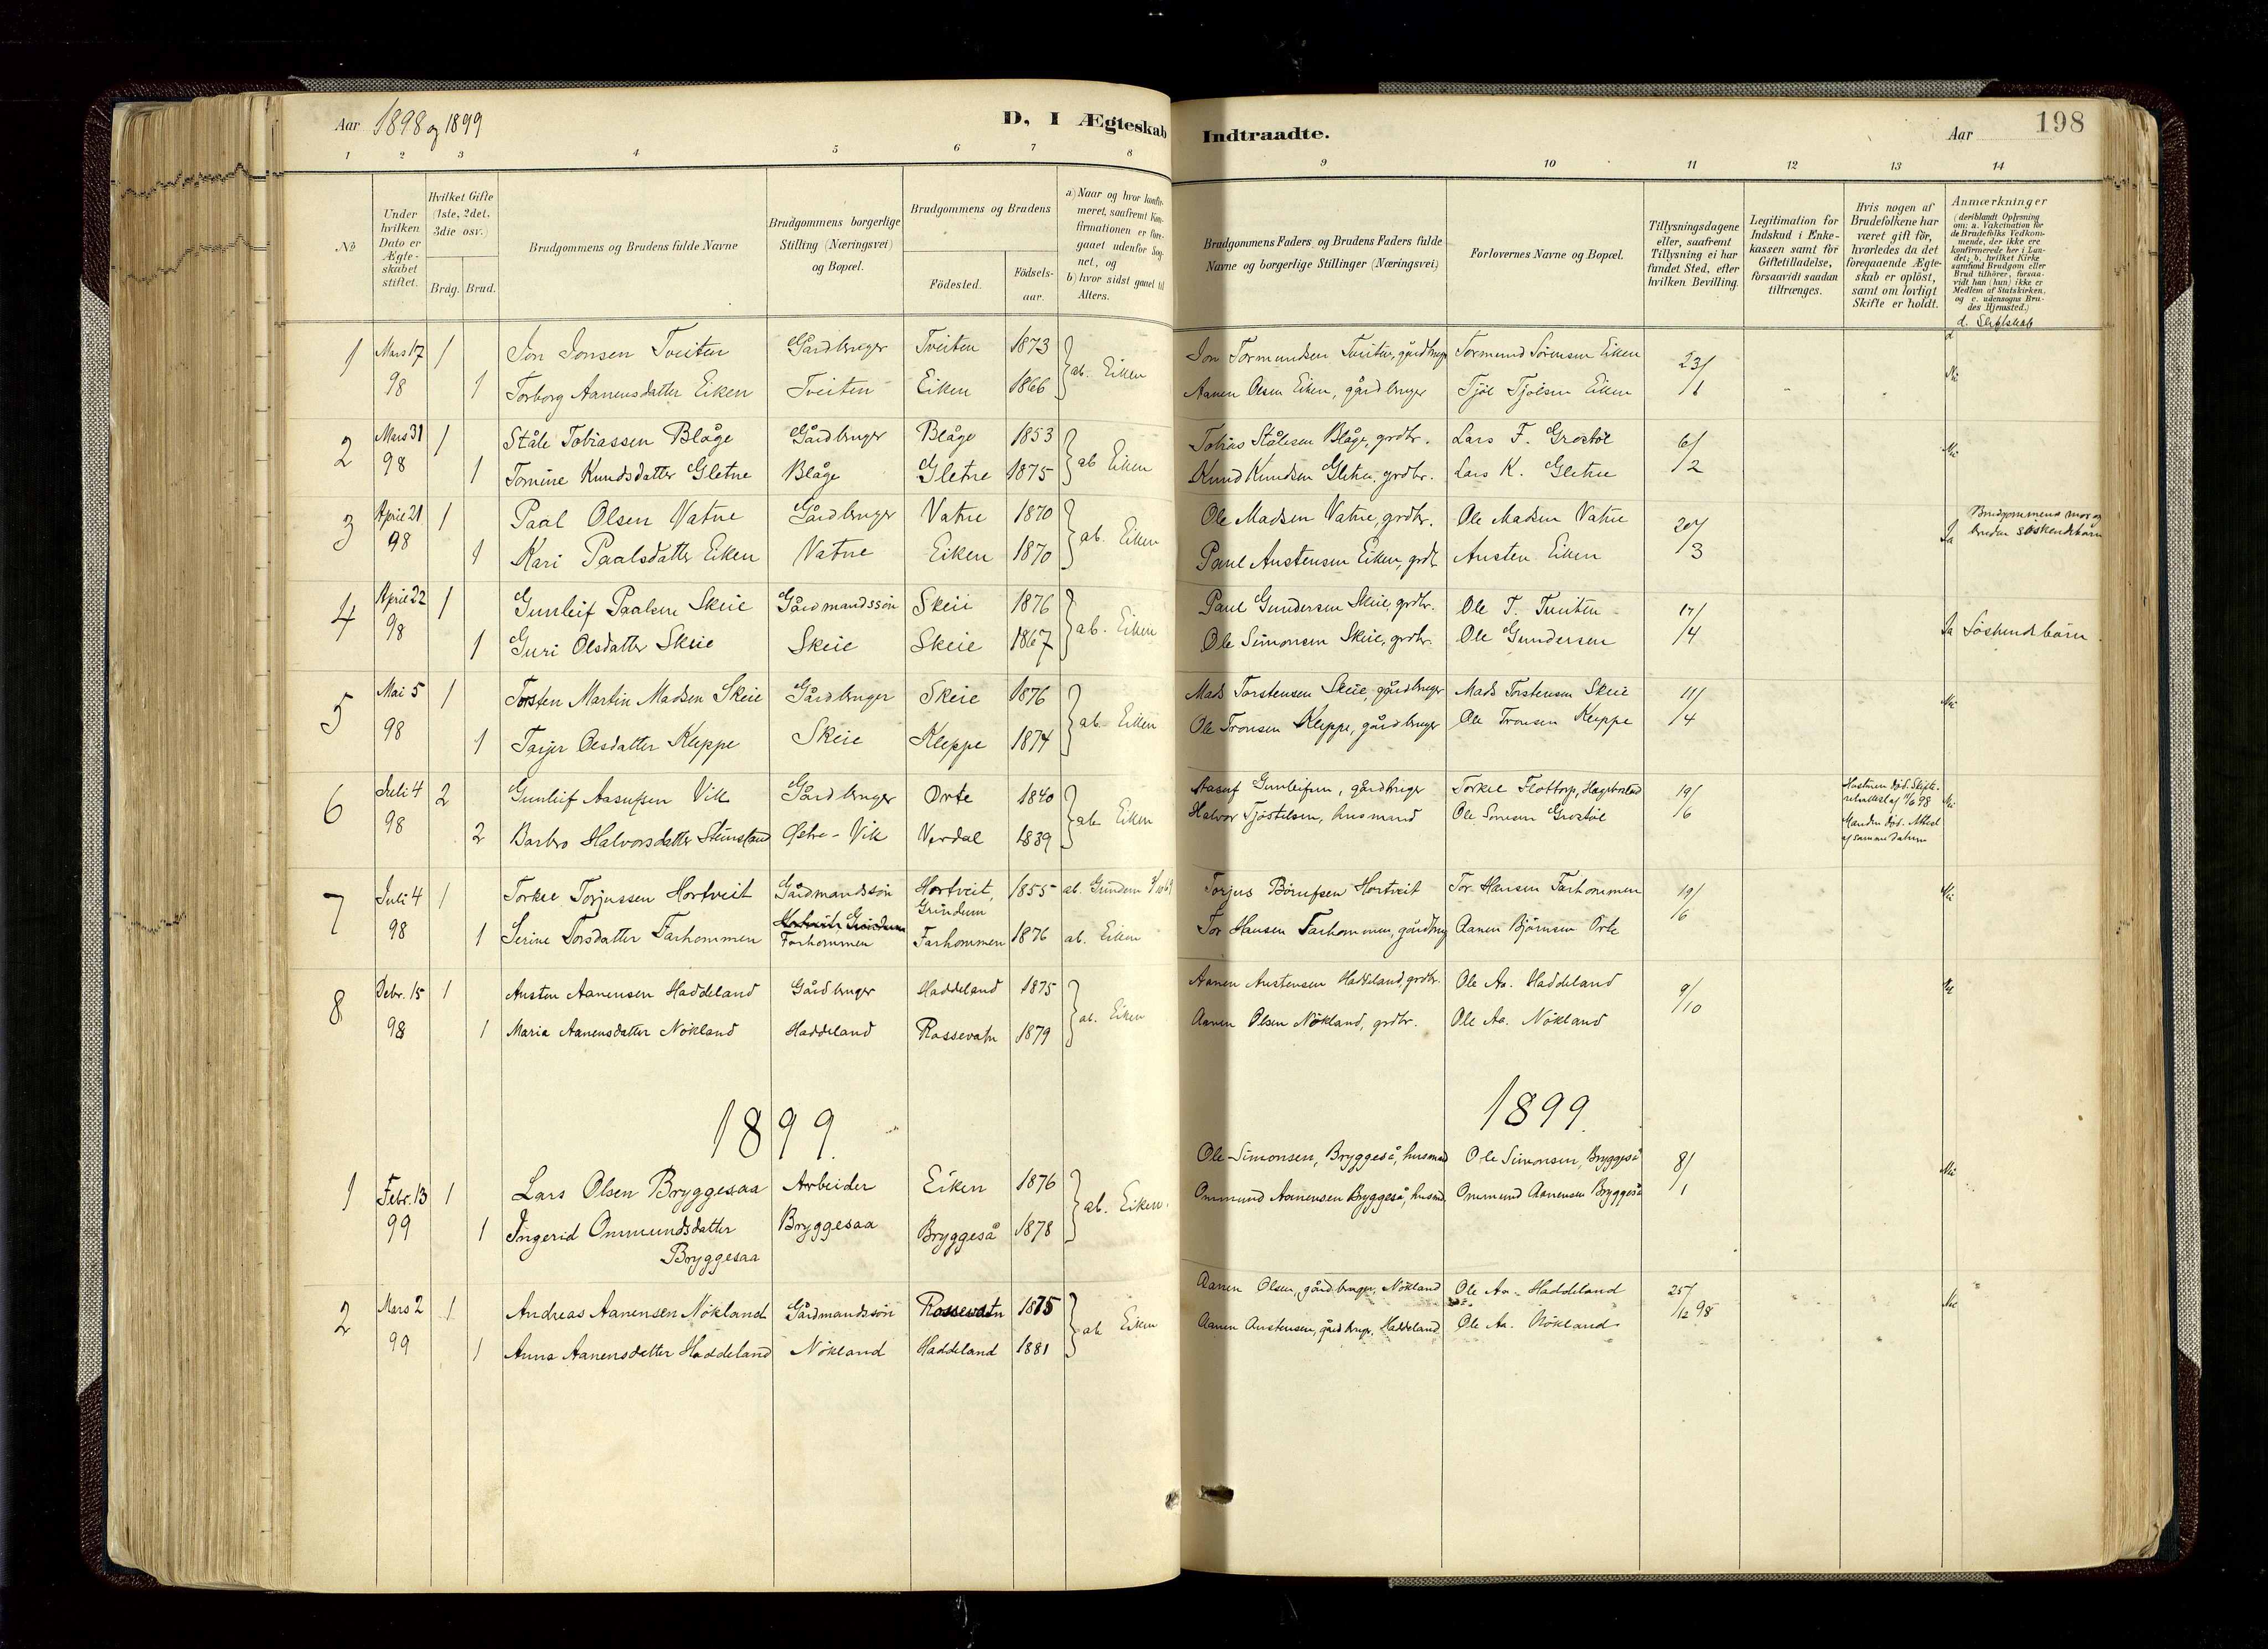 Aar 1898 og 1899
D, I Ægteskab Indtraadte.
Aar
198
1 2 3 4 5 6 7 8 9 10 11 12 13 14
No
Under hvilken Dato er Ægteskabet stiftet.
Hvilket Gifte (1ste, 2det, 3die osv.)
Brdg. Brud.
Brudgommens og Brudens fulde Navne
Brudgommens borgerlige Stilling (Næringsvei) og Bopæl.
Brudgommens og Brudens
Födested. Födselsaar.
a) Naar og hvor konfirmeret, saafremt Konfirmationen er foregaaet udenfor Sognet, og
b) hvor sidst gaaet til Alters.
Brudgommens Faders og Brudens Faders fulde Navne og borgerlige Stillinger (Næringsvei)
Forlovernes Navne og Bopæl.
Tillysningsdagene eller, saafremt Tillysning ei har fundet Sted, efter hvilken Bevilling.
Legitimation for Indskud i Enkekassen samt for Giftetilladelse, forsaavidt saadan tiltrænges.
Hvis nogen af Brudefolkene har været gift för, hvorledes da det foregaaende Ægteskab er oplöst, samt om lovligt Skifte er holdt.
Anmærkninger
(deriblandt Oplysning om: a. Vakcination for de Brudefolks Vedkommende, der ikke ere konfirmerede her i Landet; b. hvilket Kirkesamfund Brudgom eller Brud tilhörer, forsaavidt han (hun) ikke er Medlem af Statskirken, og c. udensogns Brudes Hjemsted.)
d. Slektskab
1 Mars 17 1 Jon Jonsen Tveiten Gårdbruger Tveiten 1873 ab. Eiken Jon Tormundsen Tveiten, gårdbruger Tormund Sörensen Eiken 23/1
98 1 Torborg Aanensdatter Eiken Tveiten Eiken 1866 Aanen Olsen Eiken, gårdbruger Tjöl Tjölsen Eiken
2 Mars 31 1 Ståle Tobiassen Blåge Gårdbruger Blåge 1853 ab Eiken Tobias Stålesen Blåge, grdbr. Lars F. Grostöl 6/2
98 1 Tomine Knudsdatter Gletne Blåge Gletne 1875 Knud Knudsen Gletne, grdbr. Lars K. Gletne
3 April 21 1 Paal Olsen Vatne Gårdbruger Vatne 1870 ab. Eiken Ole Madsen Vatne, grdbr. Ole Madsen Vatne 20/3 Ja Brudgommens mor og bruden söskendebarn
98 1 Kari Paalsdatter Eiken Vatne Eiken 1870 Paul Austensen Eiken, grdb Austen Eiken
4 April 22 1 Gunleif Paalsen Skeie Gårdmandssön Skeie 1876 ab. Eiken Paul Gundersen Skeie, grdbr. Ole T. Tveiten 17/4 Ja Söskendebarn.
98 1 Guri Olsdatter Skeie Skeie Skeie 1867 Ole Simonsen Skeie, grdbr. Ole Gundersen
5 Mai 5 1 Torsten Martin Madsen Skeie Gårdbruger Skeie 1876 ab Eiken Mads Torstensen Skeie, gårdbruger Mads Torstensen Skeie 11/4
98 1 Tarjer Olsdatter Kleppe Skeie Kleppe 1874 Ole Tronsen Kleppe, gårdbruger Ole Tronsen Kleppe
6 Juli 4 2 Gunleif Aasufsen Vik Gårdbruger Orte 1840 ab. Eiken Aasuf Gunleifsen, gårdbruger Torkel Flottorp, Hægebostad 19/6 Hustruen död. Skifte- 98
98 2 Barbro Halvorsdatter Vik Verdal 1839 Halvor Tjöstelsen, husmand Ole Simonsen Grostöl Manden död. Attest af samme datum
7 Juli 4 1 Torkel Torjussen Hortveit Gårdmandssön Hortveit, Grindum 1855 Torjus Hortveit Tor Hansen Farhommen 19/6
98 1 Serine Torsdatter Farhommen Farhommen Farhommen 1876 ab. Eiken Tor Hansen Farhommen, gårdbrug Aanen Björnsen Orte
8 Debr. 15 1 Austen Aanensen Haddeland Gårdbruger Haddeland 1875 ab. Eiken Aanen Austensen Haddeland, grdbr. Ole Aa. Haddeland 9/10
98 1 Maria Aanensdatter Nökland Haddeland Rossevatn 1879 Aanen Olsen Nökland, grdbr. Ole Aa. Nökland
1899. 1899.
1 Febr. 13 1 Lars Olsen Bryggesaa Arbeider Eiken 1876 ab. Eiken. Ole Simonsen, Bryggeså, husmand Ole Simonsen, Bryggeså 8/1
99 1 Ingerid Ommundsdatter Bryggesaa Bryggesaa Bryggeså 1878 Ommund Aanensen Bryggeså, husmd. Ommund Aanensen Bryggeså
2 Mars 2 1 Andreas Aanensen Nökland Gårdmandssön Rossevatn 1875 ab Eiken Aanen Olsen, gårdbruger, Nökland Ole Aa. Haddeland 25/12 98
99 1 Anna Aanensdatter Haddeland Nökland Haddeland 1881 Aanen Austensen, gårdbrugr. Haddeland Ole Aa. Nökland